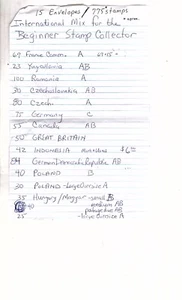 15 Envelopes / 775 stamps
International Mix for the
Beginner Stamp Collector
France A
23 Yugoslavia AB
100 Romania A
30 Czechoslovakia AB
80 Czech A
75 Germany C
55 Canada AB
50 GREAT BRITAIN
42 INDONESIA
84 German Democratic Republic AB
40 POLAND B
30 POLAND - Large Oversize A
35 Hungary/Magyar - small B
medium AB
AB
25 - Large Oversize A